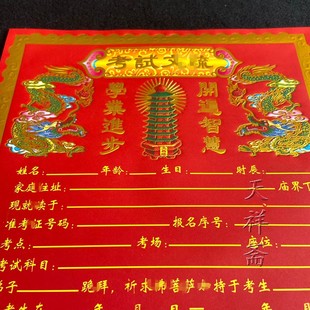 考試文疏
學業進步
開通智慧
姓名： 年龄： 生日： 时辰：
家庭住址： 庙界下
现就读于：
准考证号码： 报名序号：
考点： 考场： 座位：
考试科目：
弟子 跪拜，祈求佛菩萨加持于考生
考生在 年
天祥斋